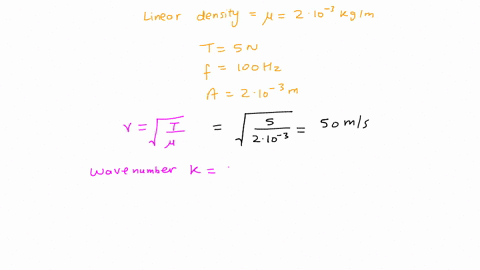 Linear density = μ = 2·10⁻³ kg/m
T = 5N
f = 100Hz
A = 2·10⁻³ m
v = √(T/μ) = √(5/(2·10⁻³)) = 50 m/s
Wavenumber k =